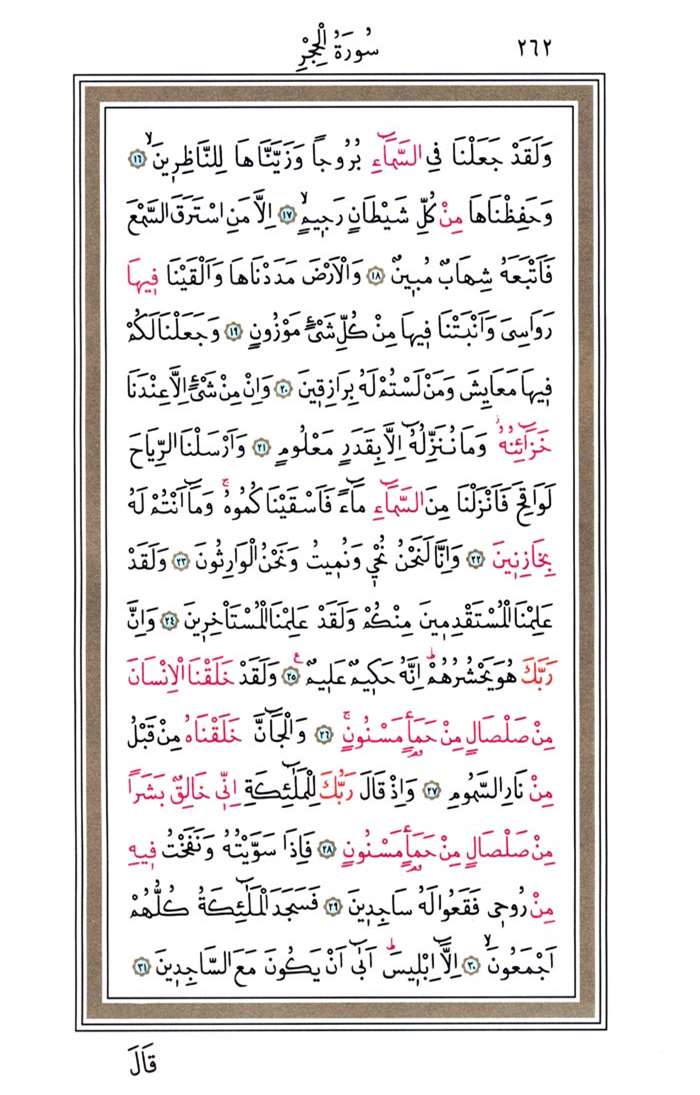 سُورَةُ الْحِجْرِ ٢٦٢
وَلَقَدْ جَعَلْنَا فِى السَّمَٓاءِ بُرُوجاً وَزَيَّنَّاهَا لِلنَّاظِر۪ينَۙ ﴿١٦﴾
وَحَفِظْنَاهَا مِنْ كُلِّ شَيْطَانٍ رَج۪يمٍۙ ﴿١٧﴾ اِلَّا مَنِ اسْتَرَقَ السَّمْعَ
فَاَتْبَعَهُ شِهَابٌ مُب۪ينٌ ﴿١٨﴾ وَالْاَرْضَ مَدَدْنَاهَا وَاَلْقَيْنَا ف۪يهَا
رَوَاسِىَ وَاَنْبَتْنَا ف۪يهَا مِنْ كُلِّ شَىْءٍ مَوْزُونٍ ﴿١٩﴾ وَجَعَلْنَا لَكُمْ
ف۪يهَا مَعَايِشَ وَمَنْ لَسْتُمْ لَهُ بِرَازِق۪ينَ ﴿٢٠﴾ وَاِنْ مِنْ شَىْءٍ اِلَّا عِنْدَنَا
خَزَٓائِنُهُۘ وَمَا نُنَزِّلُهُٓ اِلَّا بِقَدَرٍ مَعْلُومٍ ﴿٢١﴾ وَاَرْسَلْنَا الرِّيَاحَ
لَوَاقِحَ فَاَنْزَلْنَا مِنَ السَّمَٓاءِ مَٓاءً فَاَسْقَيْنَاكُمُوهُۚ وَمَٓا اَنْتُمْ لَهُ
بِخَازِن۪ينَ ﴿٢٢﴾ وَاِنَّا لَنَحْنُ نُحْي۪ وَنُم۪يتُ وَنَحْنُ الْوَارِثُونَ ﴿٢٣﴾ وَلَقَدْ
عَلِمْنَا الْمُسْتَقْدِم۪ينَ مِنْكُمْ وَلَقَدْ عَلِمْنَا الْمُسْتَأْخِر۪ينَ ﴿٢٤﴾ وَاِنَّ
رَبَّكَ هُوَ يَحْشُرُهُمْۜ اِنَّهُ حَك۪يمٌ عَل۪يمٌ۟ ﴿٢٥﴾ وَلَقَدْ خَلَقْنَا الْاِنْسَانَ
مِنْ صَلْصَالٍ مِنْ حَمَأٍ مَسْنُونٍۚ ﴿٢٦﴾ وَالْجَٓانَّ خَلَقْنَاهُ مِنْ قَبْلُ
مِنْ نَارِ السَّمُومِ ﴿٢٧﴾ وَاِذْ قَالَ رَبُّكَ لِلْمَلٰٓئِكَةِ اِنّ۪ى خَالِقٌ بَشَراً
مِنْ صَلْصَالٍ مِنْ حَمَأٍ مَسْنُونٍ ﴿٢٨﴾ فَاِذَا سَوَّيْتُهُ وَنَفَخْتُ ف۪يهِ
مِنْ رُوح۪ى فَقَعُوا لَهُ سَاجِد۪ينَ ﴿٢٩﴾ فَسَجَدَ الْمَلٰٓئِكَةُ كُلُّهُمْ
اَجْمَعُونَۙ ﴿٣٠﴾ اِلَّٓا اِبْل۪يسَۜ اَبٰٓى اَنْ يَكُونَ مَعَ السَّاجِد۪ينَ ﴿٣١﴾
قَالَ